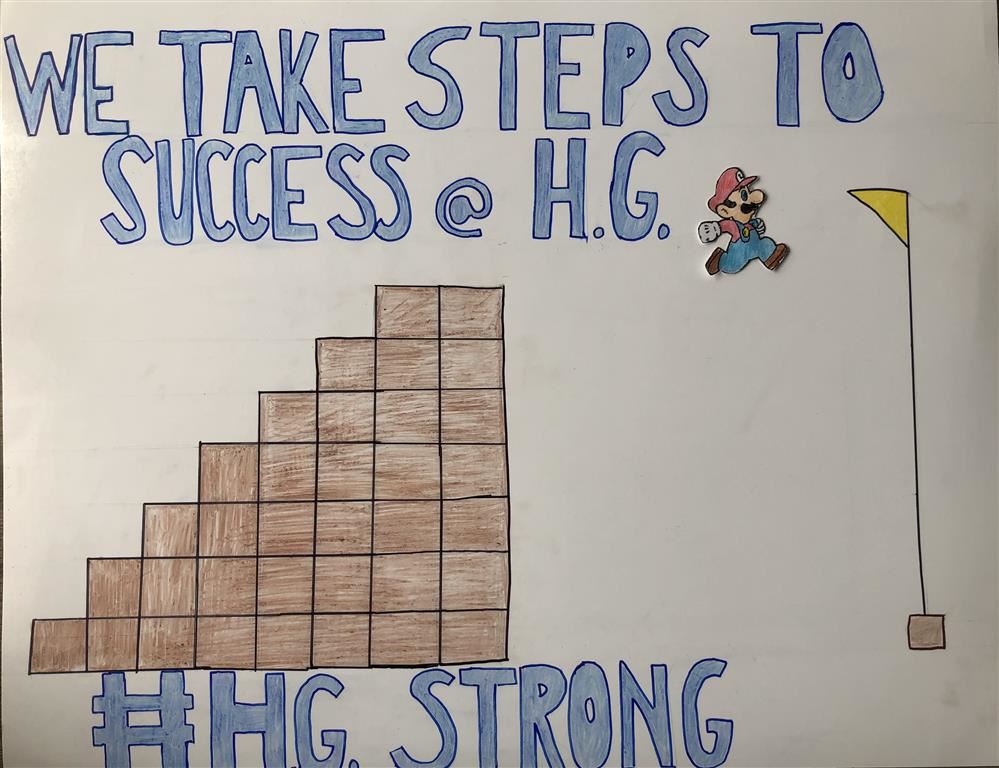 WE TAKE STEPS TO
SUCCESS @ H.G.
#H.G. STRONG